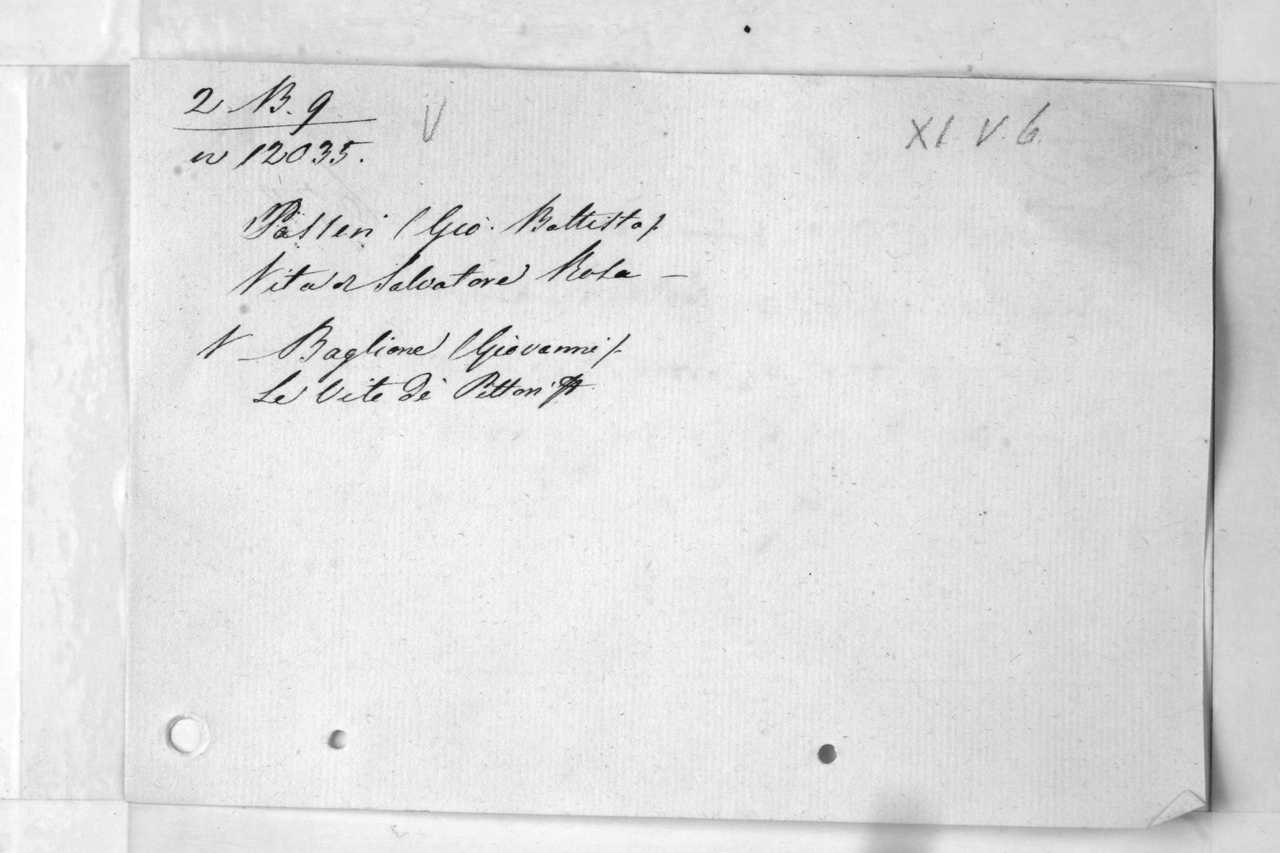 2 B. 9
V
XI. V. 6.
n 12035.
Passeri (Gio. Battista).
Vita di Salvatore Rosa —
V – Baglione (Giovanni).
Le Vite dè Pittori